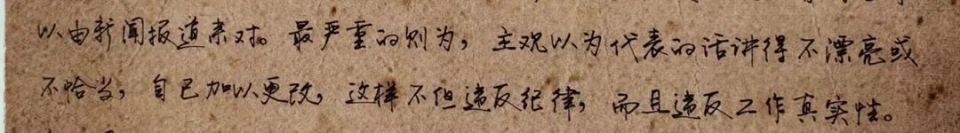 以由新闻报道来对。最严重的则为，主观以为代表的话讲得不漂亮或
不恰当，自己加以更改，这样不但违反纪律，而且违反工作真实性。